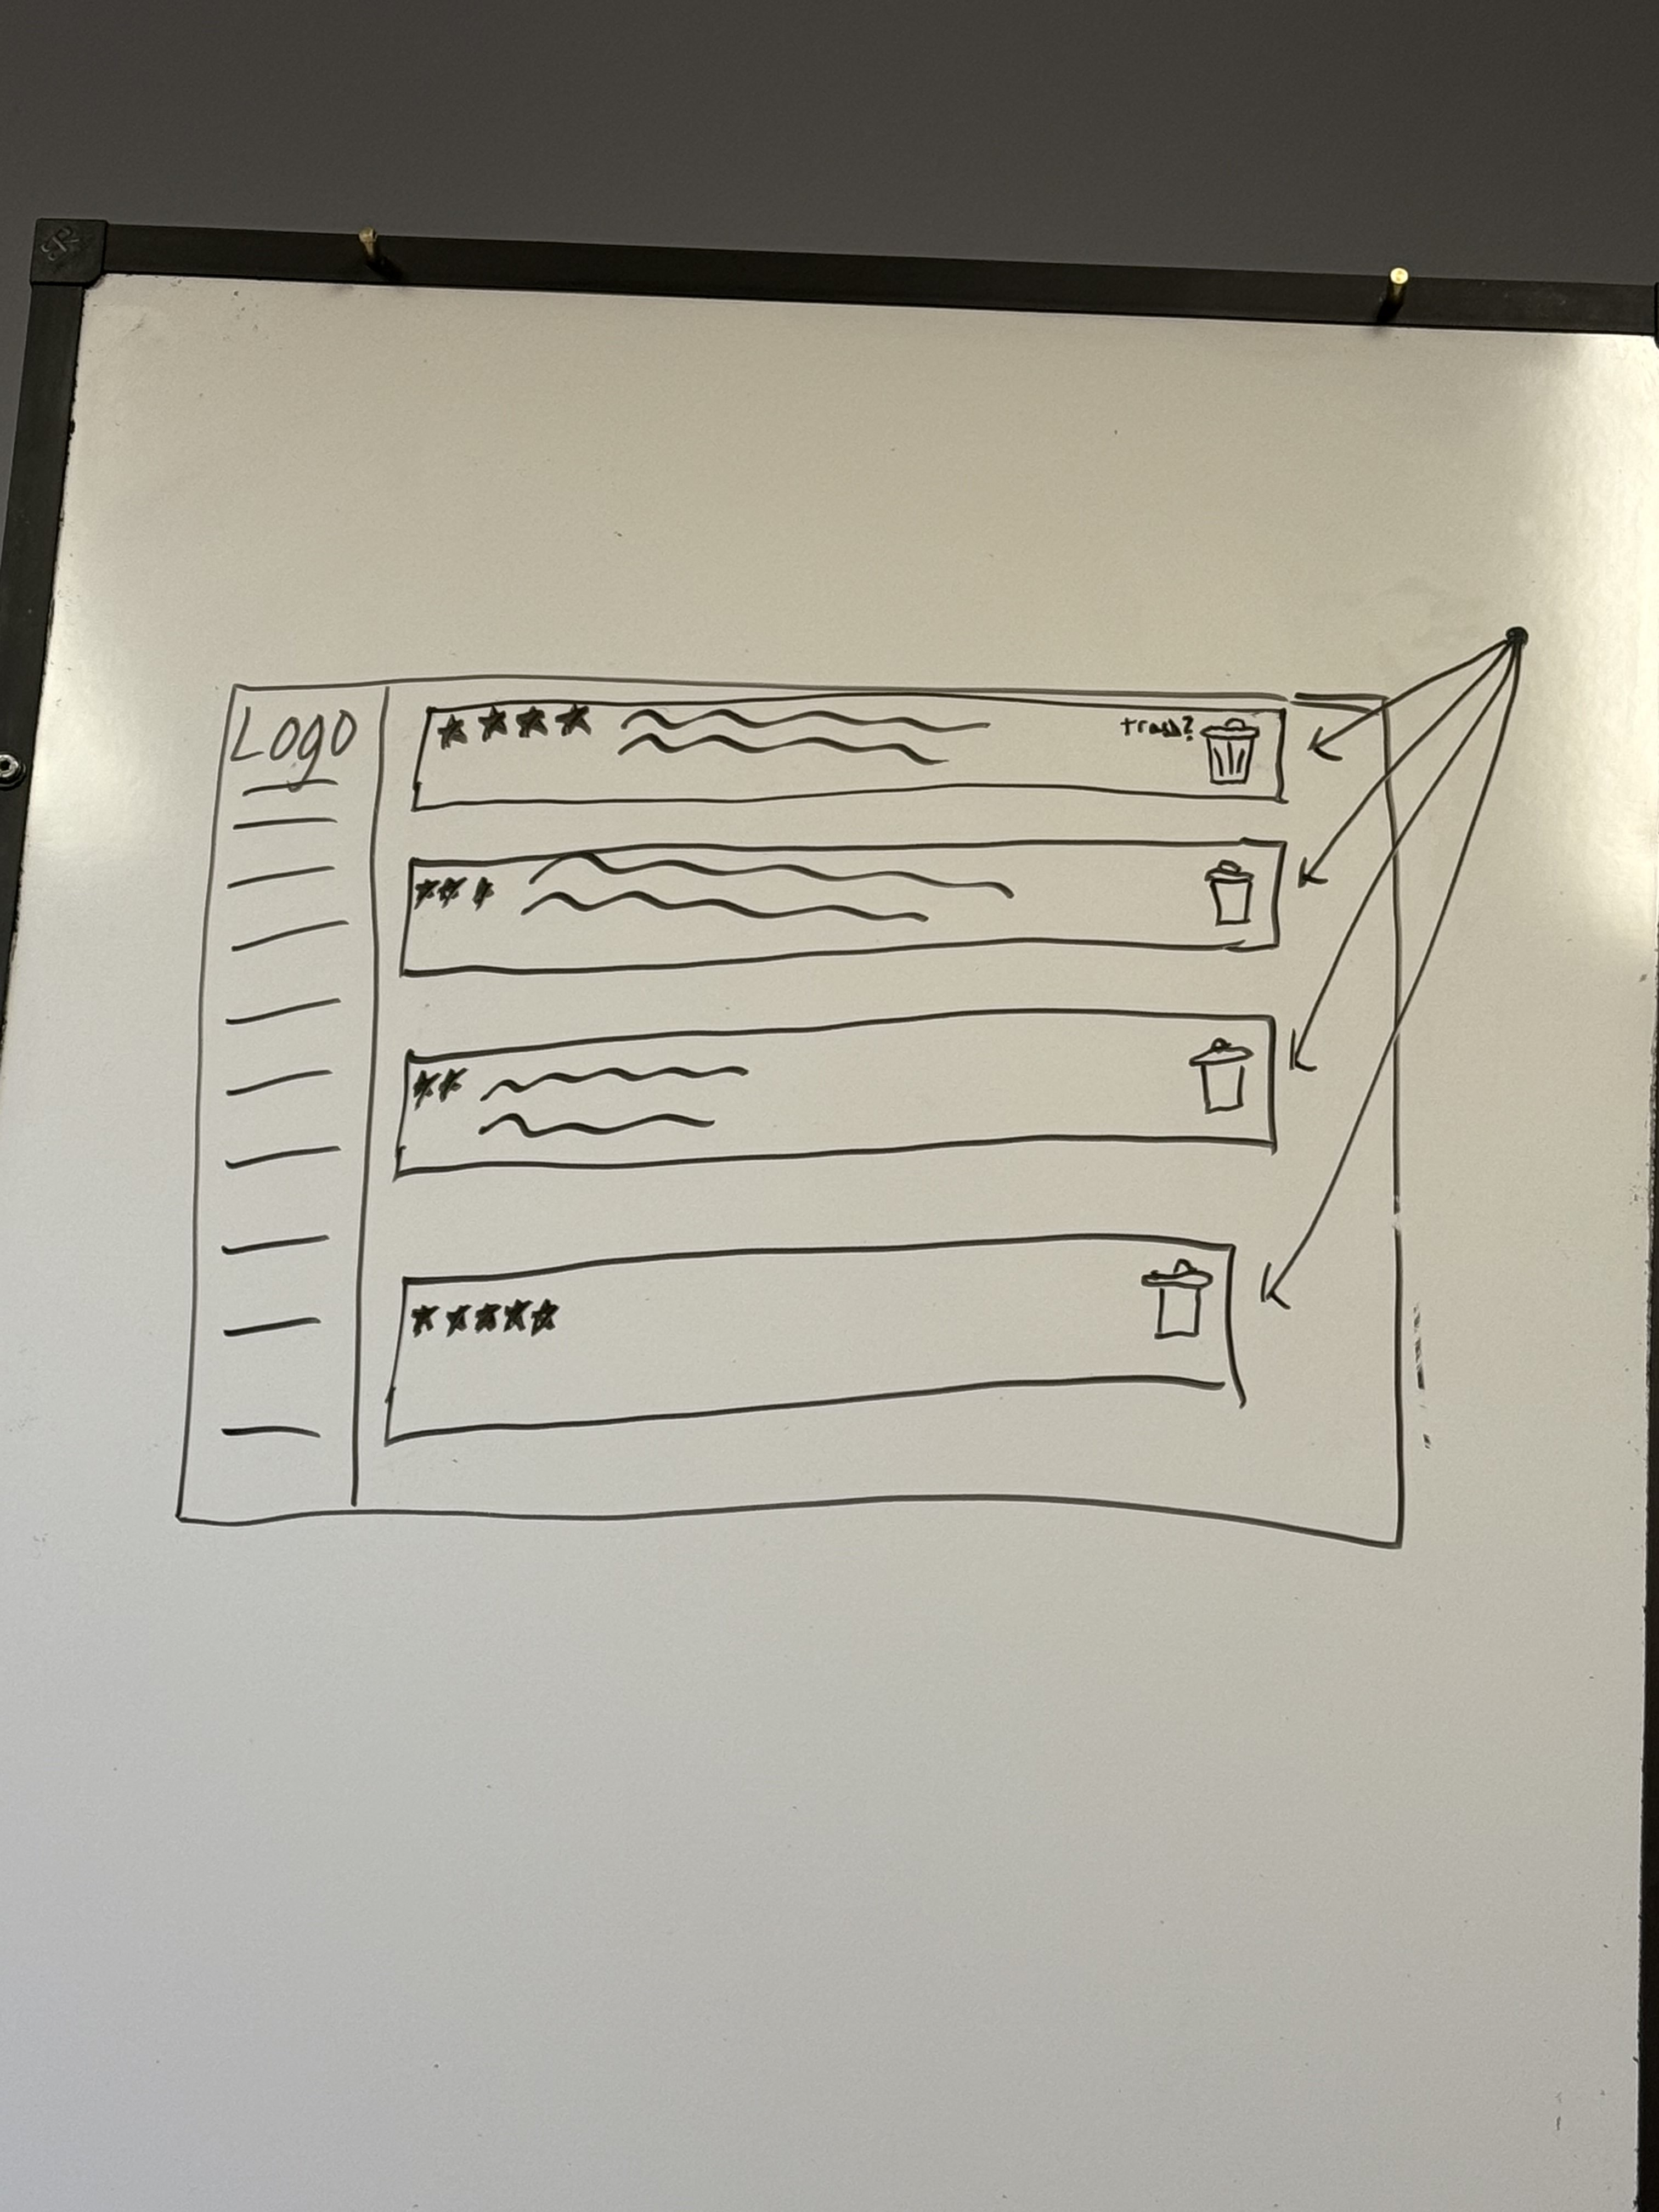 Logo
trash?